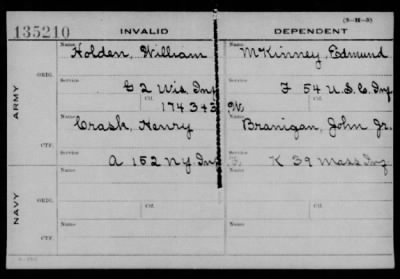 (3-H-3)
135210 INVALID DEPENDENT
Name Name
Holden, William McKinney, Edmund
ORIG.
Service Service
G 2 Wis. Inf F 54 U.S.C. Inf
Ctf. Ctf.
174343
ARMY
Name Name
Crash, Henry Branigan, John Jr.
CTF.
Service Service
A 152 NY Inf K 39 Mass Inf
Name Name
ORIG.
Ctf. Ctf.
NAVY
Name Name
CTF.